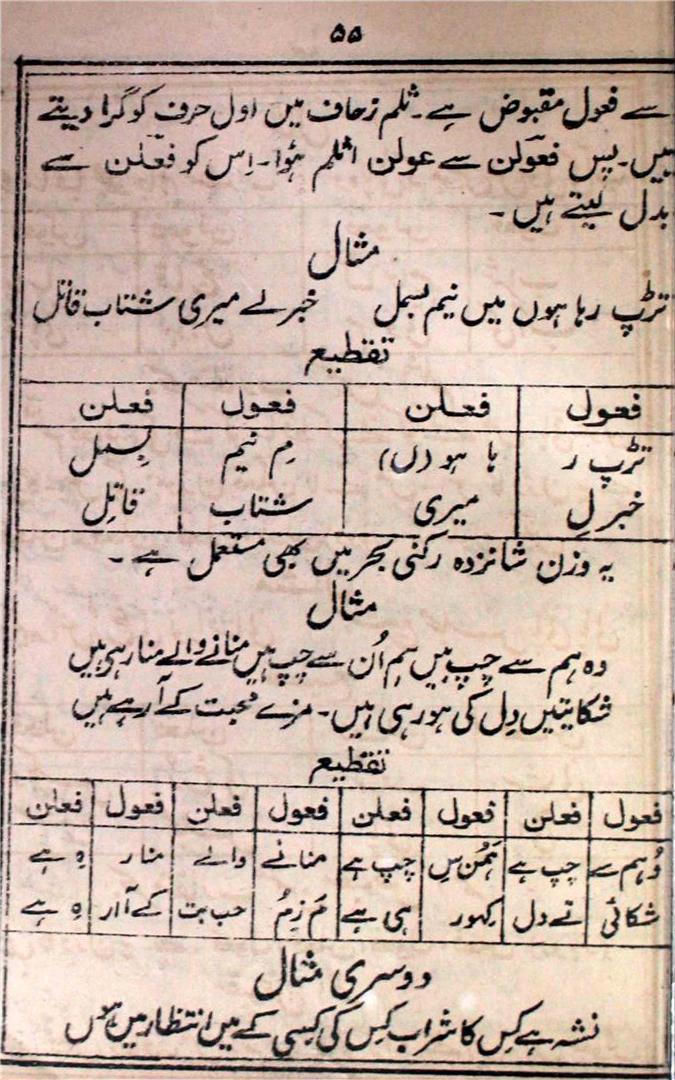 ۵۵
سے فعول مقبوض ہے۔ ثلم زحاف میں اول حرف کو گرا دیتے
ہیں۔ پس فعولن سے عولن اثلم ہؤا۔ اِس کو فعلن سے
بدل لیتے ہیں۔
مثال
تڑپ رہا ہوں میں نیم بسمل خبر لے میری شتاب قاتل
تقطیع
فعول فعلن فعول فعلن
تڑپ ر ہا ہو (ں) مِ نیم بِسمل
خبر لِ میری شتاب قاتِل
یہ وزن شانزدہ رکنی بحر میں بھی مستعمل ہے۔
مثال
وہ ہم سے چپ ہیں ہم اُن سے چپ ہیں منانے والے منا رہی ہیں
شکایتیں دِل کی ہو رہی ہیں۔ مزے محبت کے آ رہے ہیں
تقطیع
فعول فعلن فعول فعلن فعول فعلن فعول فعلن
وُ ہم سے چپ ہے ہَمُن سِ چپ ہے منانے والے منار ہِ ہے
شکائی تے دل کہور ہی ہے مَ زِمُ حب بت کے آار ہِ ہے
دوسری مثال
نشہ ہے کِس کا شراب کِس کی کِسی کے میں انتظار میں ہوں